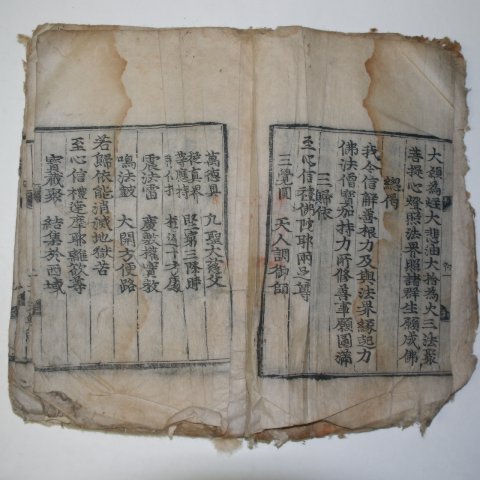 大願為炷大悲油大捨為火三法聚
菩提心燈照法界照諸群生願成佛
總偈
我今信解善根力及與法界緣起力
佛法僧寶加持力所修善事願圓滿
三歸依
至心信禮佛陁耶兩足尊
三覺圓 天人調御師
萬德具 九聖大慈父
從真界
十方廣
震法雷
鳴法鼓 大開方便路
若歸依能消滅地獄苦
至心信禮達摩耶離欲尊
寶藏聚 結集於西域